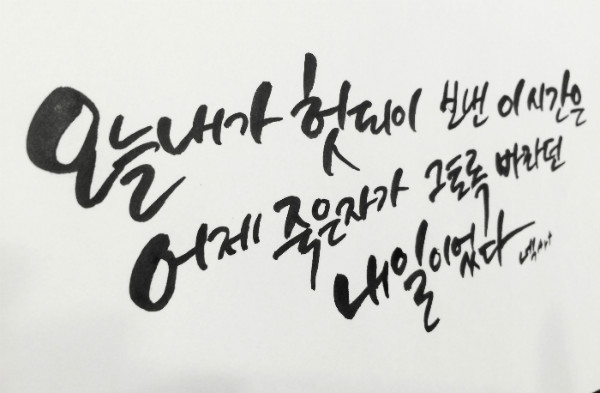 오늘 내가 헛되이 보낸 이 시간은
어제 죽은자가 그토록 바라던
내일이었다